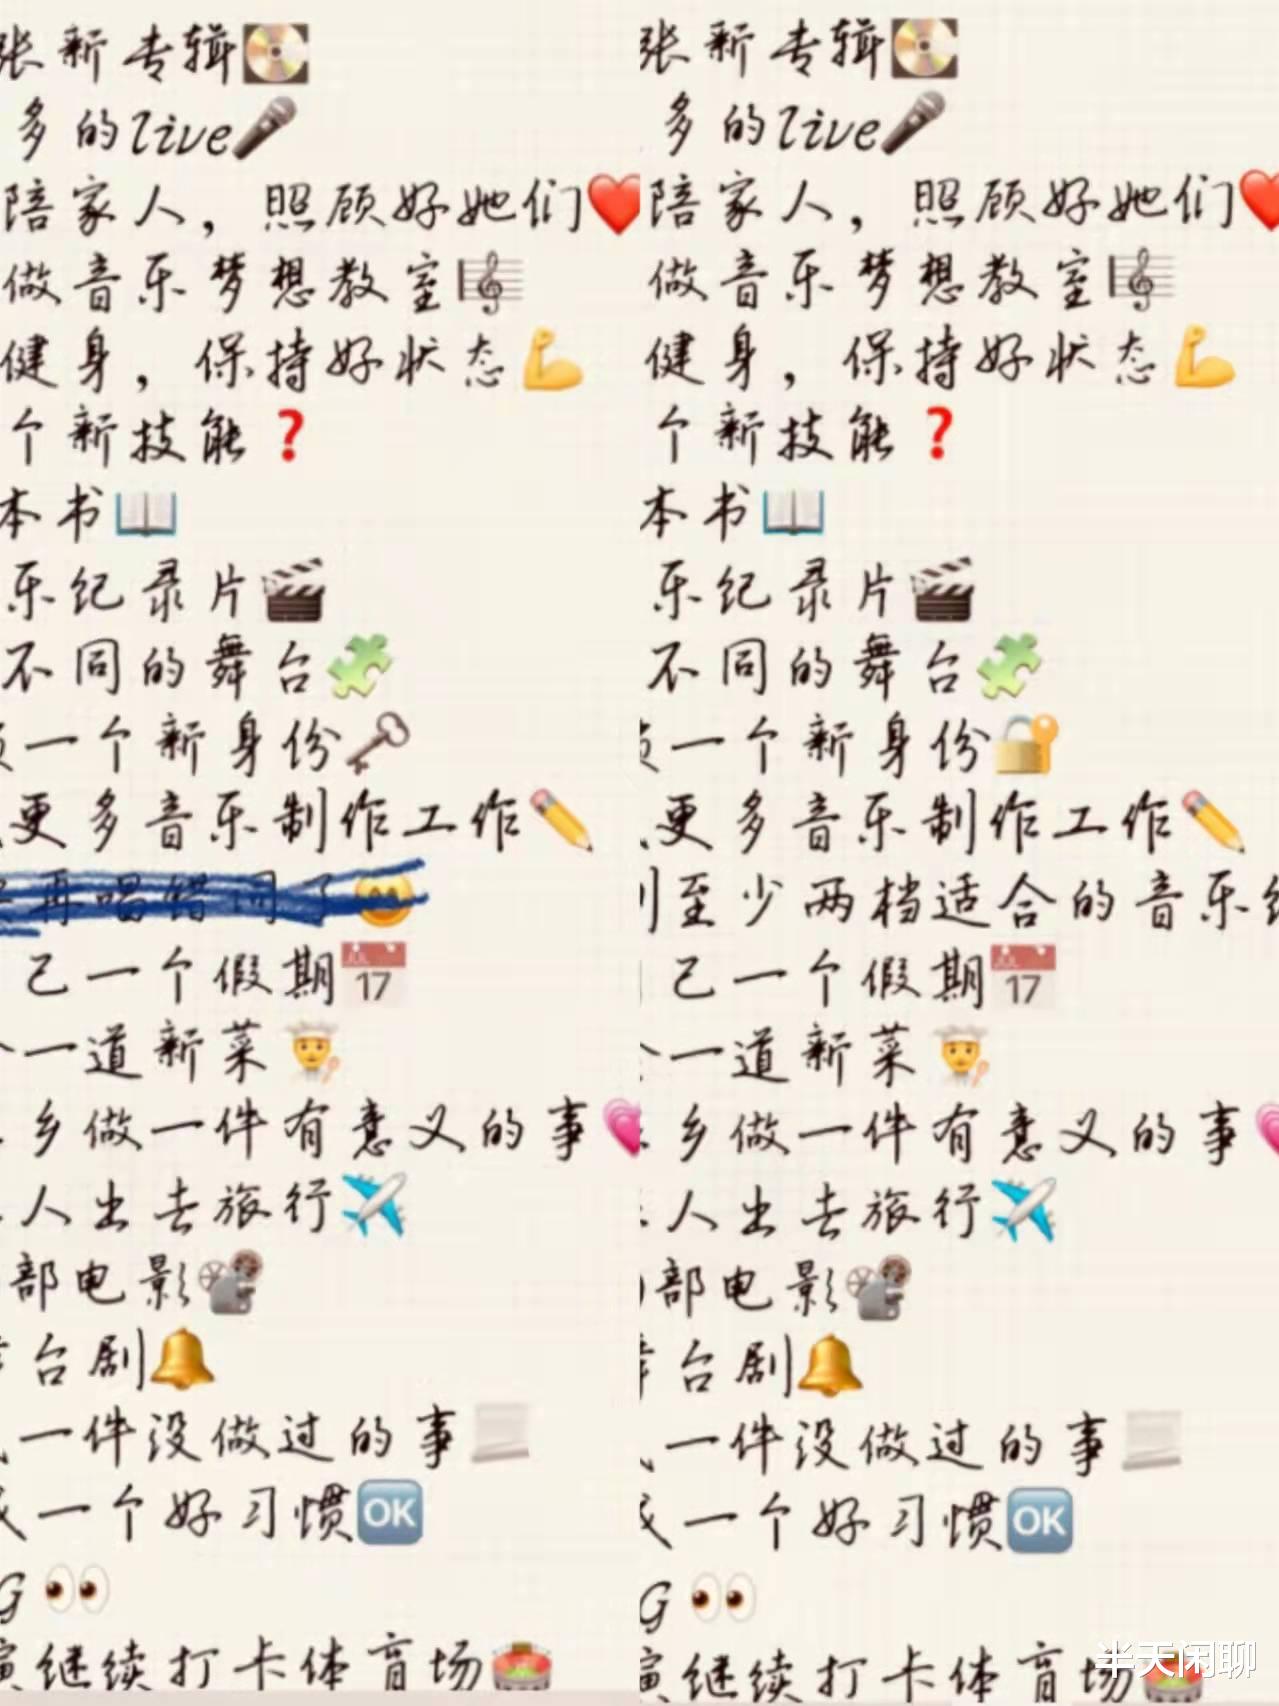 张新专辑💽
多的live🎤
陪家人，照顾好她们❤️
做音乐梦想教室🎼
健身，保持好状态💪
个新技能❓
本书📖
乐纪录片🎬
不同的舞台🧩
一个新身份🗝️
更多音乐制作工作✏️
再唱错词了
己一个假期📅
一道新菜👨‍🍳
乡做一件有意义的事💗
人出去旅行✈️
部电影📽️
台剧🔔
一件没做过的事📜
一个好习惯🆗
G👀
演继续打卡体育场🏟️
张新专辑💽
多的live🎤
陪家人，照顾好她们❤️
做音乐梦想教室🎼
健身，保持好状态💪
个新技能❓
本书📖
乐纪录片🎬
不同的舞台🧩
一个新身份🔐
更多音乐制作工作✏️
到至少两档适合的音乐
己一个假期📅
一道新菜👨‍🍳
乡做一件有意义的事💗
人出去旅行✈️
部电影📽️
台剧🔔
一件没做过的事📜
一个好习惯🆗
G👀
演继续打卡体育场🏟️
半天闲聊